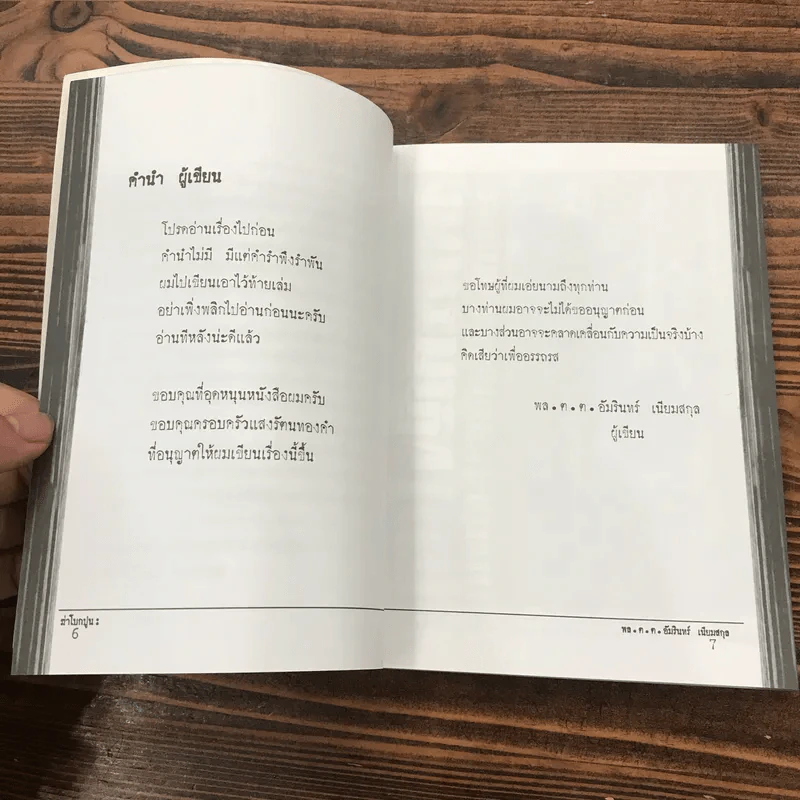 คำนำ ผู้เขียน
โปรดอ่านเรื่องไปก่อน
คำนำไม่มี มีแต่คำรำพึงรำพัน
ผมไปเขียนเอาไว้ท้ายเล่ม
อย่าเพิ่งพลิกไปอ่านก่อนนะครับ
อ่านทีหลังน่ะดีแล้ว
ขอบคุณที่อุดหนุนหนังสือผมครับ
ขอบคุณครอบครัวแสงรัตนทองคำ
ที่อนุญาตให้ผมเขียนเรื่องนี้ขึ้น
ฆ่าโบกปูน :
6
ขอโทษผู้ที่ผมเอ่ยนามถึงทุกท่าน
บางท่านผมอาจจะไม่ได้ขออนุญาตก่อน
และบางส่วนอาจจะคลาดเคลื่อนกับความเป็นจริงบ้าง
คิดเสียว่าเพื่ออรรถรส
พล.ต.ต.อัมรินทร์ เนียมสกุล
ผู้เขียน
พล.ต.ต.อัมรินทร์ เนียมสกุล
7